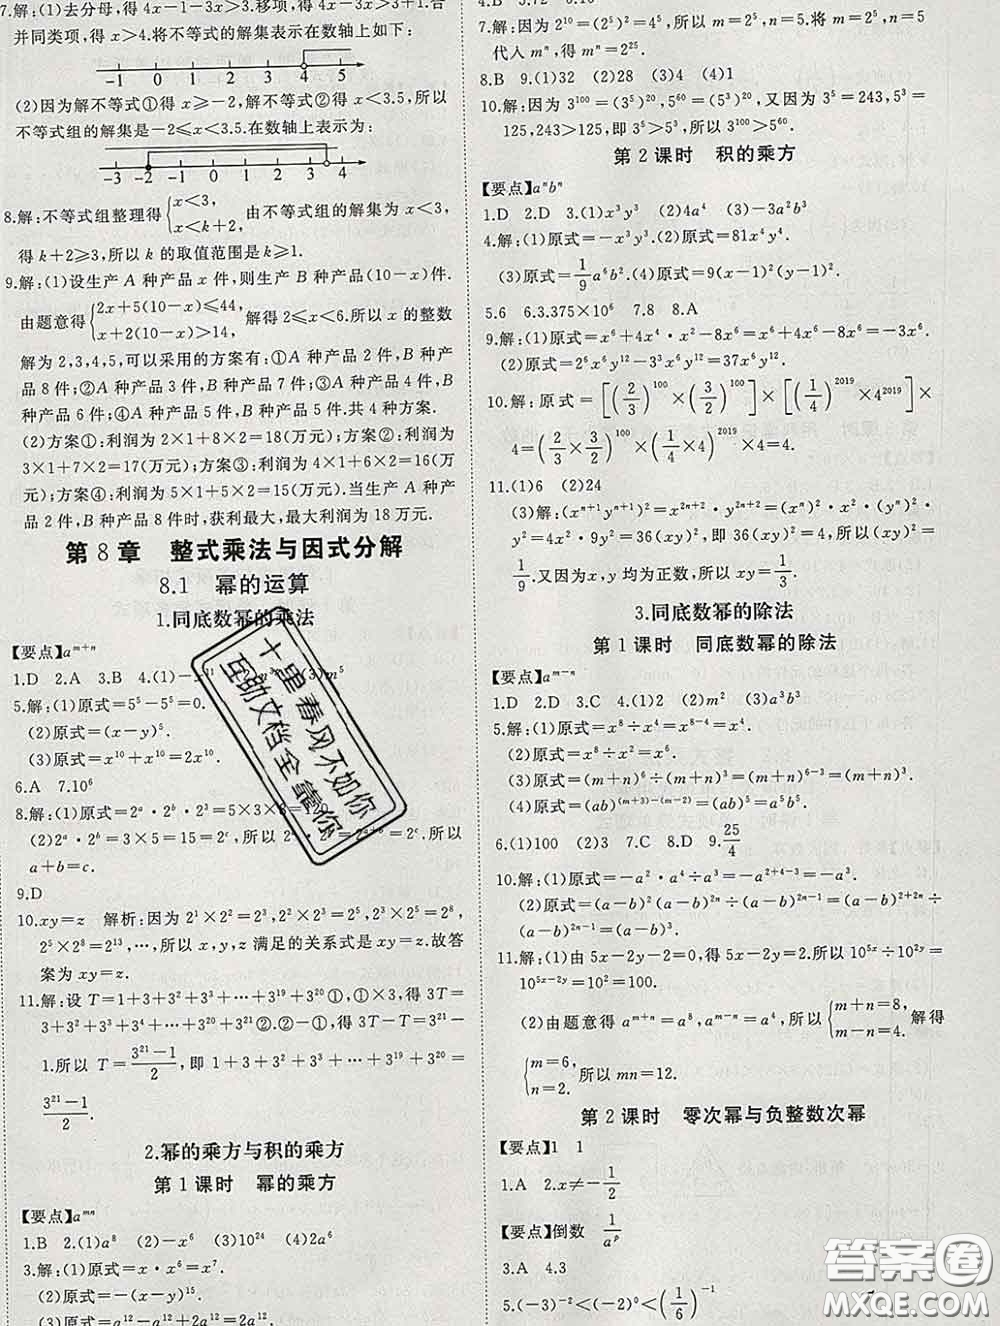 7.解:(1)去分母,得 4x-1-3x>3,移项,得 4x-3x>3+1.合
并同类项,得 x>4.将不等式的解集表示在数轴上如下:
-1 0 1 2 3 4 5
(2)因为解不等式①得 x≥-2,解不等式②得 x<3.5,所以
不等式组的解集是-2≤x<3.5.在数轴上表示为:
-3 -2 -1 0 1 2 3 4
8.解:不等式组整理得{x<3, x<k+2, 由不等式组的解集为 x<3,
得 k+2≥3,所以 k 的取值范围是 k≥1.
9.解:(1)设生产 A 种产品 x 件,则生产 B 种产品(10-x)件.
由题意得{2x+5(10-x)≤44, x+2(10-x)>14, 解得 2≤x<6.所以 x 的整数
解为 2,3,4,5,可以采用的方案有:①A 种产品 2 件,B 种产
品 8 件;②A 种产品 3 件,B 种产品 7 件;③A 种产品 4 件,
B 种产品 6 件;④A 种产品 5 件,B 种产品 5 件.共 4 种方案.
(2)方案①:利润为 2×1+8×2=18(万元);方案②:利润为
3×1+7×2=17(万元);方案③:利润为 4×1+6×2=16(万
元);方案④:利润为 5×1+5×2=15(万元).当生产 A 种产
品 2 件,B 种产品 8 件时,获利最大,最大利润为 18 万元.
第 8 章 整式乘法与因式分解
8.1 幂的运算
1.同底数幂的乘法
【要点】a^{m+n}
1.D 2.A 3.B 4.(1)-x^{11} (3)m^5
5.解:(1)原式=5^5-5^5=0.
(2)原式=(x-y)^5.
(3)原式=x^{10}+x^{10}=2x^{10}.
6.A 7.10^6
8.解:(1)原式=2^a·2^b·2^a=5×3×
(2)2^a·2^b=3×5=15=2^c,所以 2^{a+b}=2^c.所以
a+b=c.
9.D
10.xy=z 解析:因为 2^1×2^2=2^3,2^2×2^3=2^5,2^3×2^5=2^8,
2^5×2^8=2^{13},…,所以 x,y,z 满足的关系式是 xy=z.故答
案为 xy=z.
11.解:设 T=1+3+3^2+3^3+…+3^{19}+3^{20}①,①×3,得 3T=
3+3^2+3^3+3^4+…+3^{20}+3^{21}②.②-①,得 3T-T=3^{21}-
1.所以 T=(3^{21}-1)/2,即 1+3+3^2+3^3+…+3^{19}+3^{20}=
(3^{21}-1)/2.
2.幂的乘方与积的乘方
第 1 课时 幂的乘方
【要点】a^{mn}
1.B 2.(1)a^8 (2)-x^6 (3)10^{24} (4)2a^6
3.解:(1)原式=x·x^6=x^7.
(2)原式=-(x-y)^{15}.
(3)原式=a^{12}-a^{12}+2a^{12}=2a^{12}.
7.解:因为 2^{10}=(2^5)^2=m^2=2^n,所以 m=2^5,n=5.将 m=2^5,n=5
代入 m^n,得 m^n=2^{25}.
8.B 9.(1)32 (2)28 (3)4 (4)1
10.解:因为 3^{100}=(3^5)^{20},5^{60}=(5^3)^{20},又因为 3^5=243,5^3=
125,243>125,即 3^5>5^3,所以 3^{100}>5^{60}.
第 2 课时 积的乘方
【要点】a^n b^n
1.D 2.D 3.(1)x^3y^3 (2)4a^4 (3)-3a^2b^3
4.解:(1)原式=-x^3y^3.(2)原式=81x^4y^4.
(3)原式=1/9 a^6b^2.(4)原式=9(x-1)^2(y-1)^2.
5.6 6.3.375×10^6 7.8 8.A
9.解:(1)原式=x^6+4x^4·x^2-8x^6=x^6+4x^6-8x^6=-3x^6.
(2)原式=2^6x^6y^{12}-3^3x^6y^{12}=37x^6y^{12}.
10.解:原式=[(2/3)^{100}×(3/2)^{100}]×[(1/4)^{2019}×4^{2019}]×
4=(2/3×3/2)^{100}×(1/4×4)^{2019}×4=4.
11.(1)6 (2)24
(3)解:(x^{n+1}y^{n+1})^2=x^{2n+2}·y^{2n+2}=(x^n)^2·x^2·(y^n)^2·
y^2=4x^2·9y^2=36(xy)^2,即 36(xy)^2=4,所以(xy)^2=
1/9.又因为 x,y 均为正数,所以 xy=1/3.
3.同底数幂的除法
第 1 课时 同底数幂的除法
【要点】a^{m-n}
1.D 2.D 3.C 4.(1)2 (2)m^2 (3)a^3b^3
5.解:(1)原式=x^8÷x^4=x^{8-4}=x^4.
(2)原式=x^8÷x^2=x^6.
(3)原式=(m+n)^6÷(m+n)^3=(m+n)^{6-3}=(m+n)^3.
(4)原式=(ab)^{(m+3)-(m-2)}=(ab)^5=a^5b^5.
6.(1)100 (2)3 7.C 8.D 9.25/4
10.解:(1)原式=-a^2·a^4÷a^3=-a^{2+4-3}=-a^3.
(2)原式=(a-b)^2(a-b)^{2n}÷(a-b)^{2n-1}=(a-b)^{2+2n-
2n+1}=(a-b)^3.
11.解:(1)由 5x-2y-2=0,得 5x-2y=2.所以 10^{5x}÷10^{2y}=
10^{5x-2y}=10^2=100.
(2)由题意得 a^{m+n}=a^8,a^{m-n}=a^4,所以{m+n=8, m-n=4. 解得
{m=6, n=2. 所以 mn=12.
第 2 课时 零次幂与负整数次幂
【要点】1 1
1.A 2.x≠-1/2
【要点】倒数 1/a^p
3.A 4.3
5.(-3)^{-2}<(-2)^0<(1/6)^{-1}
十里春风不如你
互助文档全靠你
答案圈
MXQE.COM